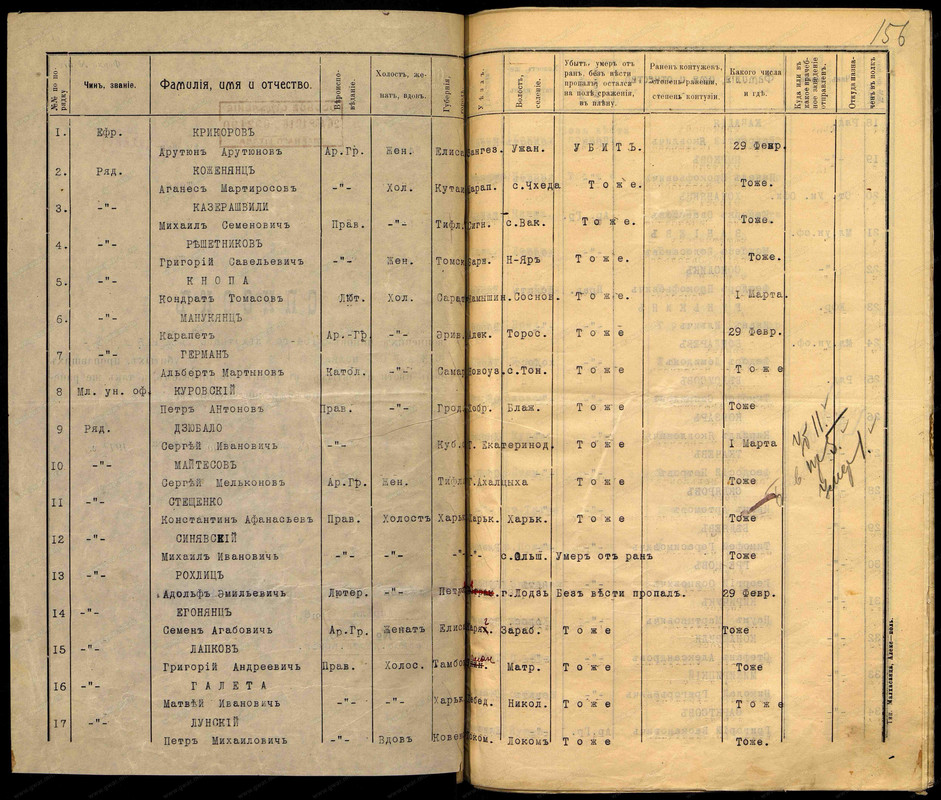 156
№№ по порядку Чинъ, званіе. Фамилія, имя и отчество. Вѣроисповѣданіе. Холостъ, женатъ, вдовъ. Губернія, Уѣздъ, Волость, селеніе. Убитъ, умеръ отъ ранъ, безъ вѣсти пропалъ, остался на полѣ сраженія, въ плѣну. Раненъ контуженъ, степень раненія, степень контузіи. Какого числа и гдѣ. Куда или въ какое врачебное заведеніе отправленъ. Откуда назначенъ въ полкъ
1. Ефр. КРИКОРОВЪ
Арутюнъ Арутюновъ Ар.Гр. Жен. Елиса Зангез. Ужан. УБИТЪ. 29 Февр.
2. Ряд. КОЖЕНЯНЦЪ
Аганесъ Мартиросовъ -"- Хол. Кутаи Шарап. с.Чхеда Тоже. Тоже.
3. -"- КАЗЕРАШВИЛИ
Михаилъ Семеновичъ Прав. -"- Тифл. Сигн. с.Вак. Тоже. Тоже.
4. -"- РѢШЕТНИКОВЪ
Григорій Савельевичъ -"- Жен. Томск Барн. Н-Яръ Тоже. Тоже.
5. -"- КНОПА
Кондратъ Томасовъ Лют. Хол. Сарат Камышин. Соснов. Тоже. 1 Марта.
6. -"- МАНУКЯНЦЪ
Карапетъ Ар.-Гр. -"- Эрив. Алек. Торос. Тоже 29 Февр.
7 -"- ГЕРМАНЪ
Альбертъ Мартыновъ Катол. -"- Самар Новоуз. с.Тон. Тоже Тоже
8 Мл. ун. оф. КУРОВСКІЙ
Петръ Антоновъ Прав. -"- Грод. Кобр. Блаж. Тоже Тоже
9 Ряд. ДЗЮБАЛО
Сергѣй Ивановичъ -"- Куб.о Г. Екатеринод. Тоже 1 Марта
10 -"- МАЙТЕСОВЪ
Сергѣй Мельконовъ Ар.Гр. Жен. Тифл. Г.Ахалцыха Тоже Тоже
11 -"- СТЕЩЕНКО
Константинъ Афанасьевъ Прав. Холостъ Харьк Харьк. Харьк. Тоже Тоже
12 -"- СИНЯВСКІЙ
Михаилъ Ивановичъ -"- -"- -"- -"- с.Ольш. Умеръ отъ ранъ Тоже
13 -"- РОХЛИЦЪ
Адольфъ Эмильевичъ Лютер. -"- Петро г.Лодзь Безъ вѣсти пропалъ. 29 Февр.
14 -"- ЕГОНЯНЦЪ
Семенъ Агабовичъ Ар.Гр. Женатъ Елиса Зараб. Тоже Тоже
15 -"- ЛАПКОВЪ
Григорій Андреевичъ Прав. Холос. Тамбов Матр. Тоже Тоже
16 -"- ГАЛЕТА
Матвѣй Ивановичъ -"- -"- Харьк Лебед. Никол. Тоже Тоже
17 -"- ЛУНСКІЙ
Петръ Михаиловичъ -"- Вдовъ Ковен Локомъ Тоже Тоже.